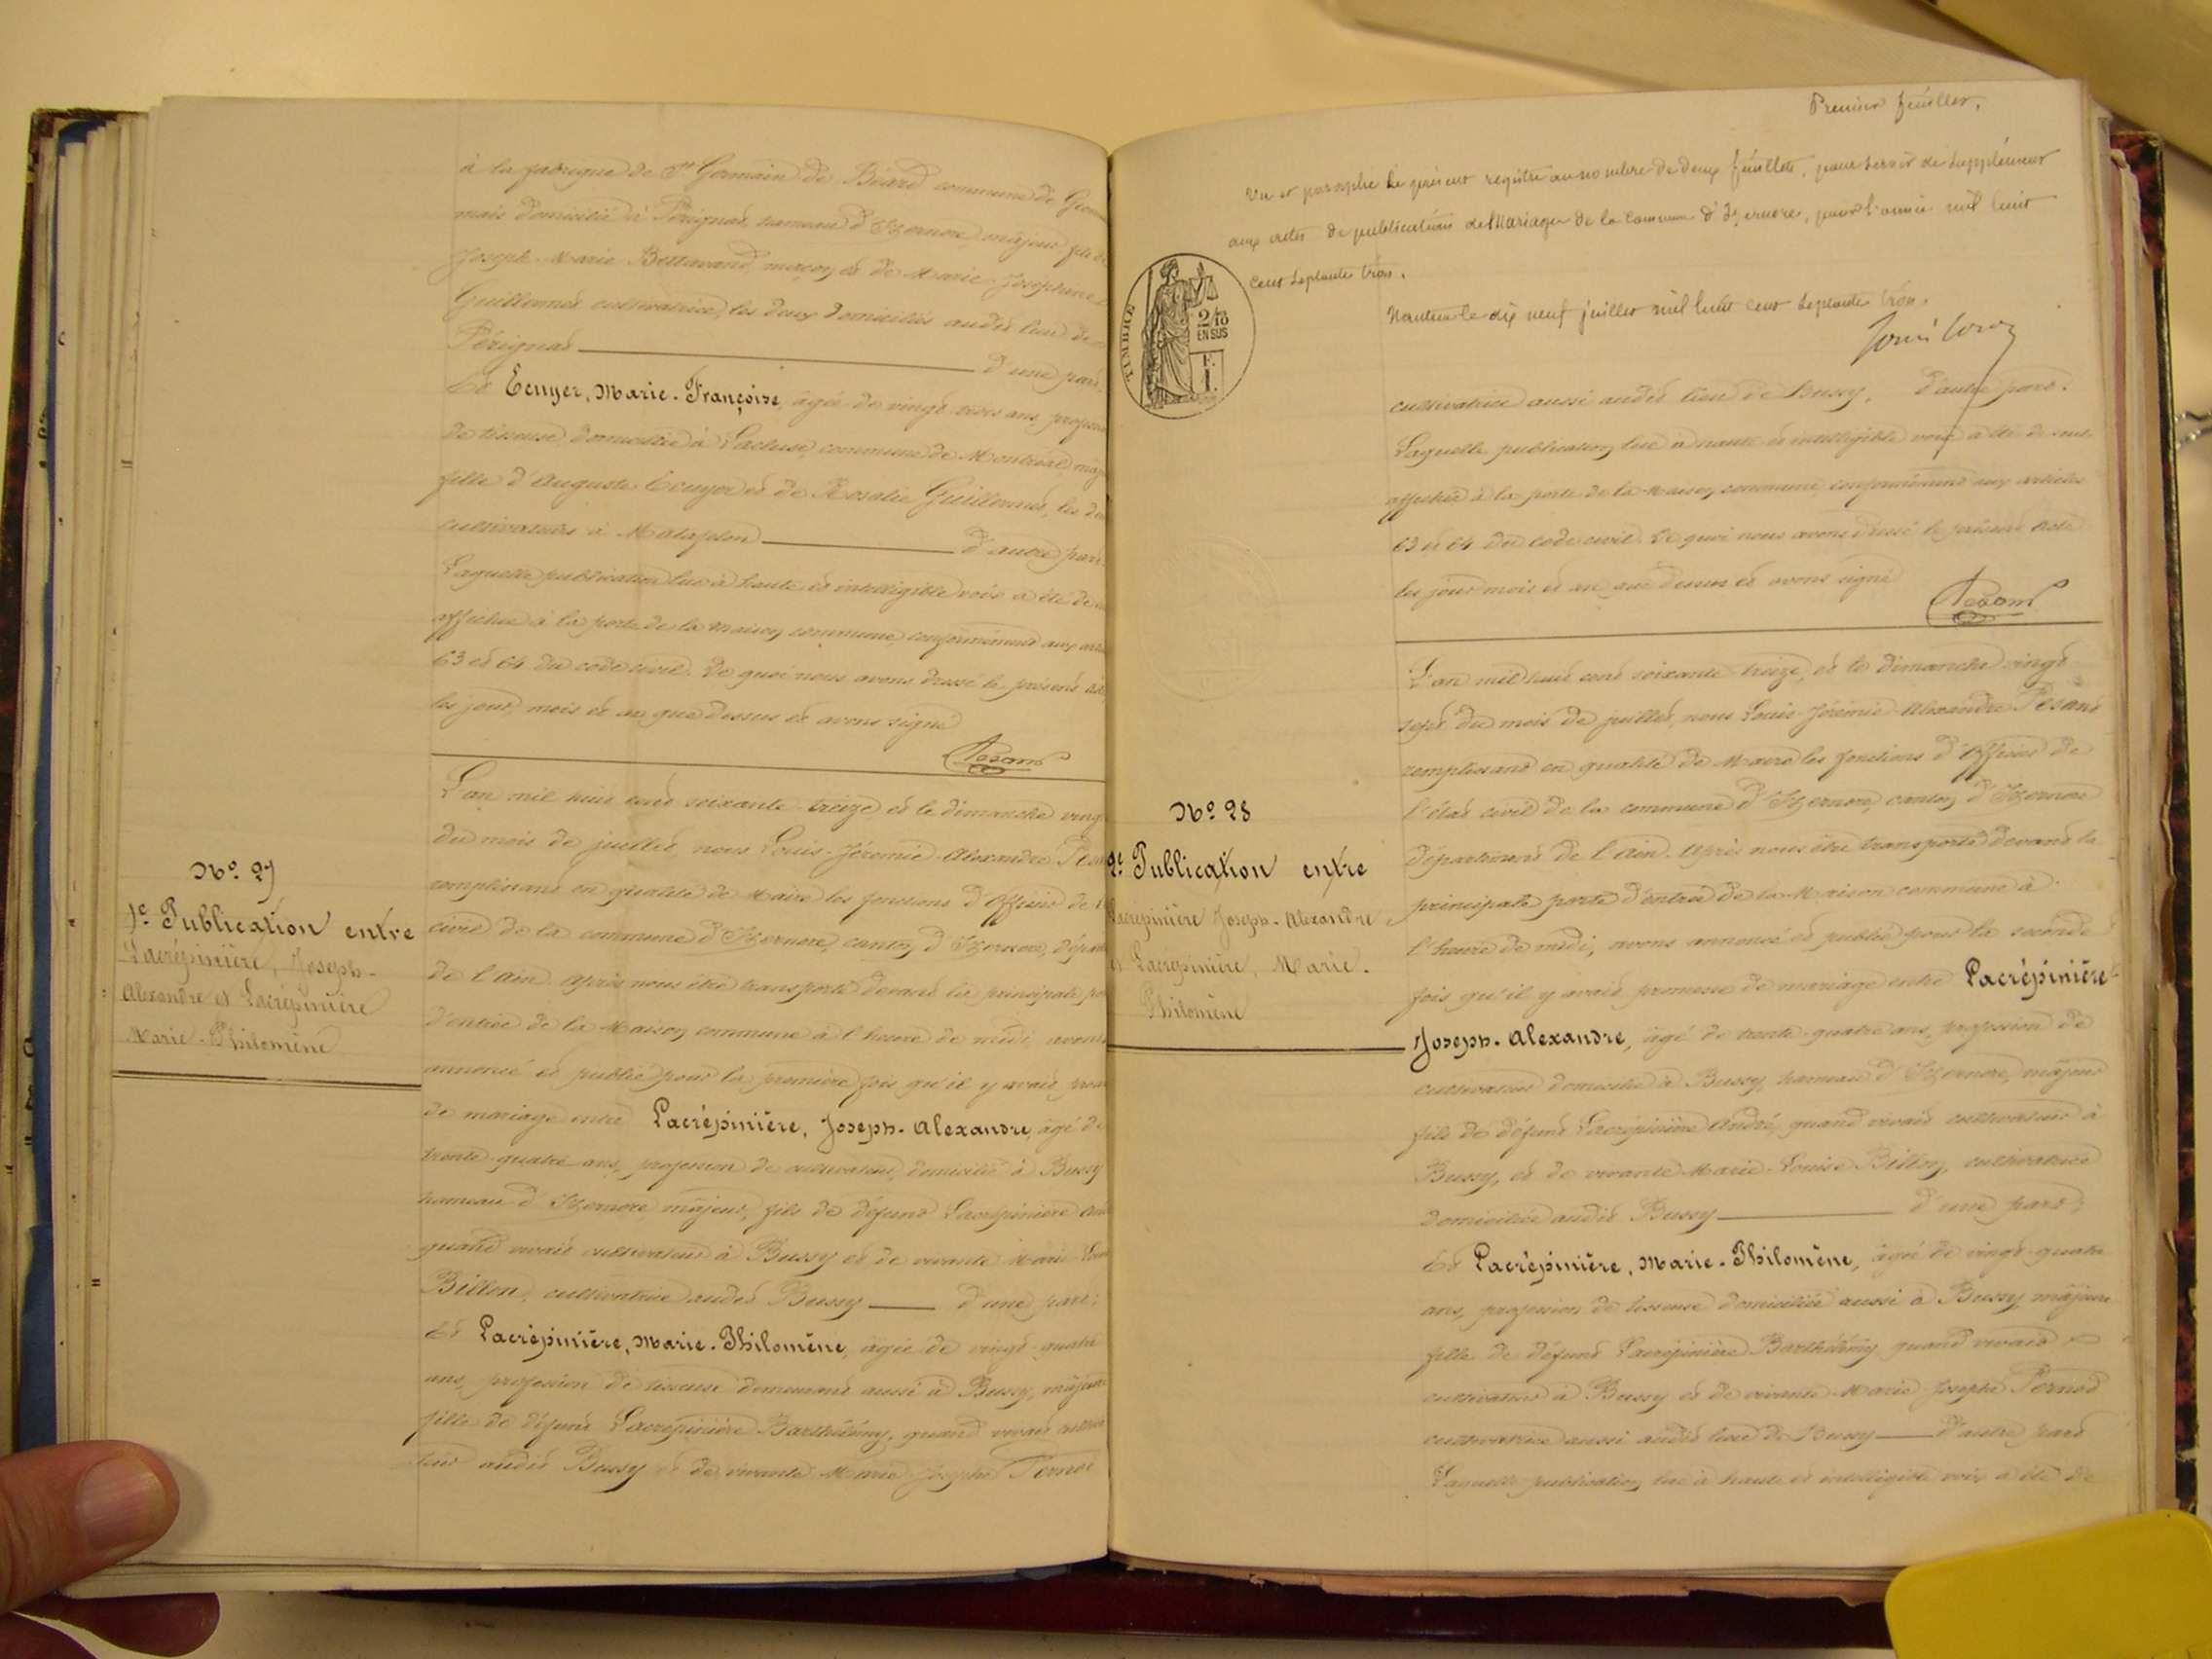 à la fabrique de St Germain de Béard commune de Geo
mais domicilié à Pérignat, hameau d'Izernore, majeur fils de
Joseph-Marie Bettavand, maçon et de Marie-Joséphine
Guillermet cultivatrice, les deux domiciliés audit lieu de
Pérignat d'une part,
Et Ecuyer, Marie-Françoise, âgée de vingt trois ans, profession
de tisseuse domiciliée à Lacluse, commune de Montréal, maj
fille d'Auguste Ecuyer et de Rosalie Guillermet, les deux
cultivateurs à Matafelon d'autre part.
Laquelle publication lue à haute et intelligible voix a été de
affichée à la porte de la Maison commune, conformément aux arti
63 et 64 du code civil. De quoi nous avons dressé le présent acte
les jour, mois et an que dessus et avons signé
Pesant
No. 27
1e Publication entre
Lacrépinière, Joseph-
Alexandre et Lacrépinière
Marie-Philomène
L'an mil huit cent soixante-treize et le dimanche vingt
du mois de juillet, nous Louis-Jérémie-Alexandre Pesan
remplissant en qualité de Maire les fonctions d'Officier de l'
civil de la commune d'Izernore, canton d'Izernore, départ
de l'Ain. Après nous être transporté devant la principale por
d'entrée de la Maison commune à l'heure de midi, avons
annoncé et publié pour la première fois qu'il y avait prom
de mariage entre Lacrépinière, Joseph-Alexandre, âgé de
trente-quatre ans, profession de cultivateur, domicilié à Bussy
hameau d'Izernore, majeur, fils de défunt Lacrépinière An
quand vivait cultivateur à Bussy et de vivante Marie Loui
Billon, cultivatrice audit Bussy d'une part;
Et Lacrépinière, Marie-Philomène, âgée de vingt-quatre
ans, profession de tisseuse demeurant aussi à Bussy, majeure
fille de défunt Lacrépinière Barthélémy, quand vivait cultiva
teur audit Bussy et de vivante Marie Josephe Pernod
Premier feuillet.
Vu et paraphé le présent registre au nombre de deux feuillets, pour servir de supplément
aux actes de publications de Mariages de la Commune d'Izernore, pour l'année mil huit
cent septante trois.
Nantua le dix neuf juillet mil huit cent septante trois.
TIMBRE
2/10
EN SUS
F.
1.
cultivatrice aussi audit lieu de Bussy, d'autre part.
Laquelle publication lue à haute et intelligible voix a été de suite
affichée à la porte de la Maison commune, conformément aux articles
63 et 64 du code civil. De quoi nous avons dressé le présent acte
les jour mois et an que dessus et avons signé
Pesant
No. 28
2e Publication entre
Lacrépinière Joseph-Alexandre
et Lacrépinière, Marie-
Philomène
L'an mil huit cent soixante-treize, et le dimanche vingt
sept du mois de juillet, nous Louis-Jérémie-Alexandre Pesant
remplissant en qualité de Maire les fonctions d'Officier de
l'état civil de la commune d'Izernore, canton d'Izernore
département de l'Ain. Après nous être transporté devant la
principale porte d'entrée de la Maison commune à
l'heure de midi, avons annoncé et publié pour la seconde
fois qu'il y avait promesse de mariage entre Lacrépinière
Joseph-Alexandre, âgé de trente-quatre ans, profession de
cultivateur domicilié à Bussy, hameau d'Izernore, majeur
fils de défunt Lacrépinière André, quand vivait cultivateur à
Bussy, et de vivante Marie-Louise Billon, cultivatrice
domiciliée audit Bussy d'une part;
Et Lacrépinière, Marie-Philomène, âgée de vingt-quatre
ans, profession de tisseuse domiciliée aussi à Bussy, majeure
fille de défunt Lacrépinière Barthélémy quand vivait
cultivateur à Bussy et de vivante Marie Josephe Pernod
cultivatrice aussi audit lieu de Bussy d'autre part
Laquelle publication lue à haute et intelligible voix a été de